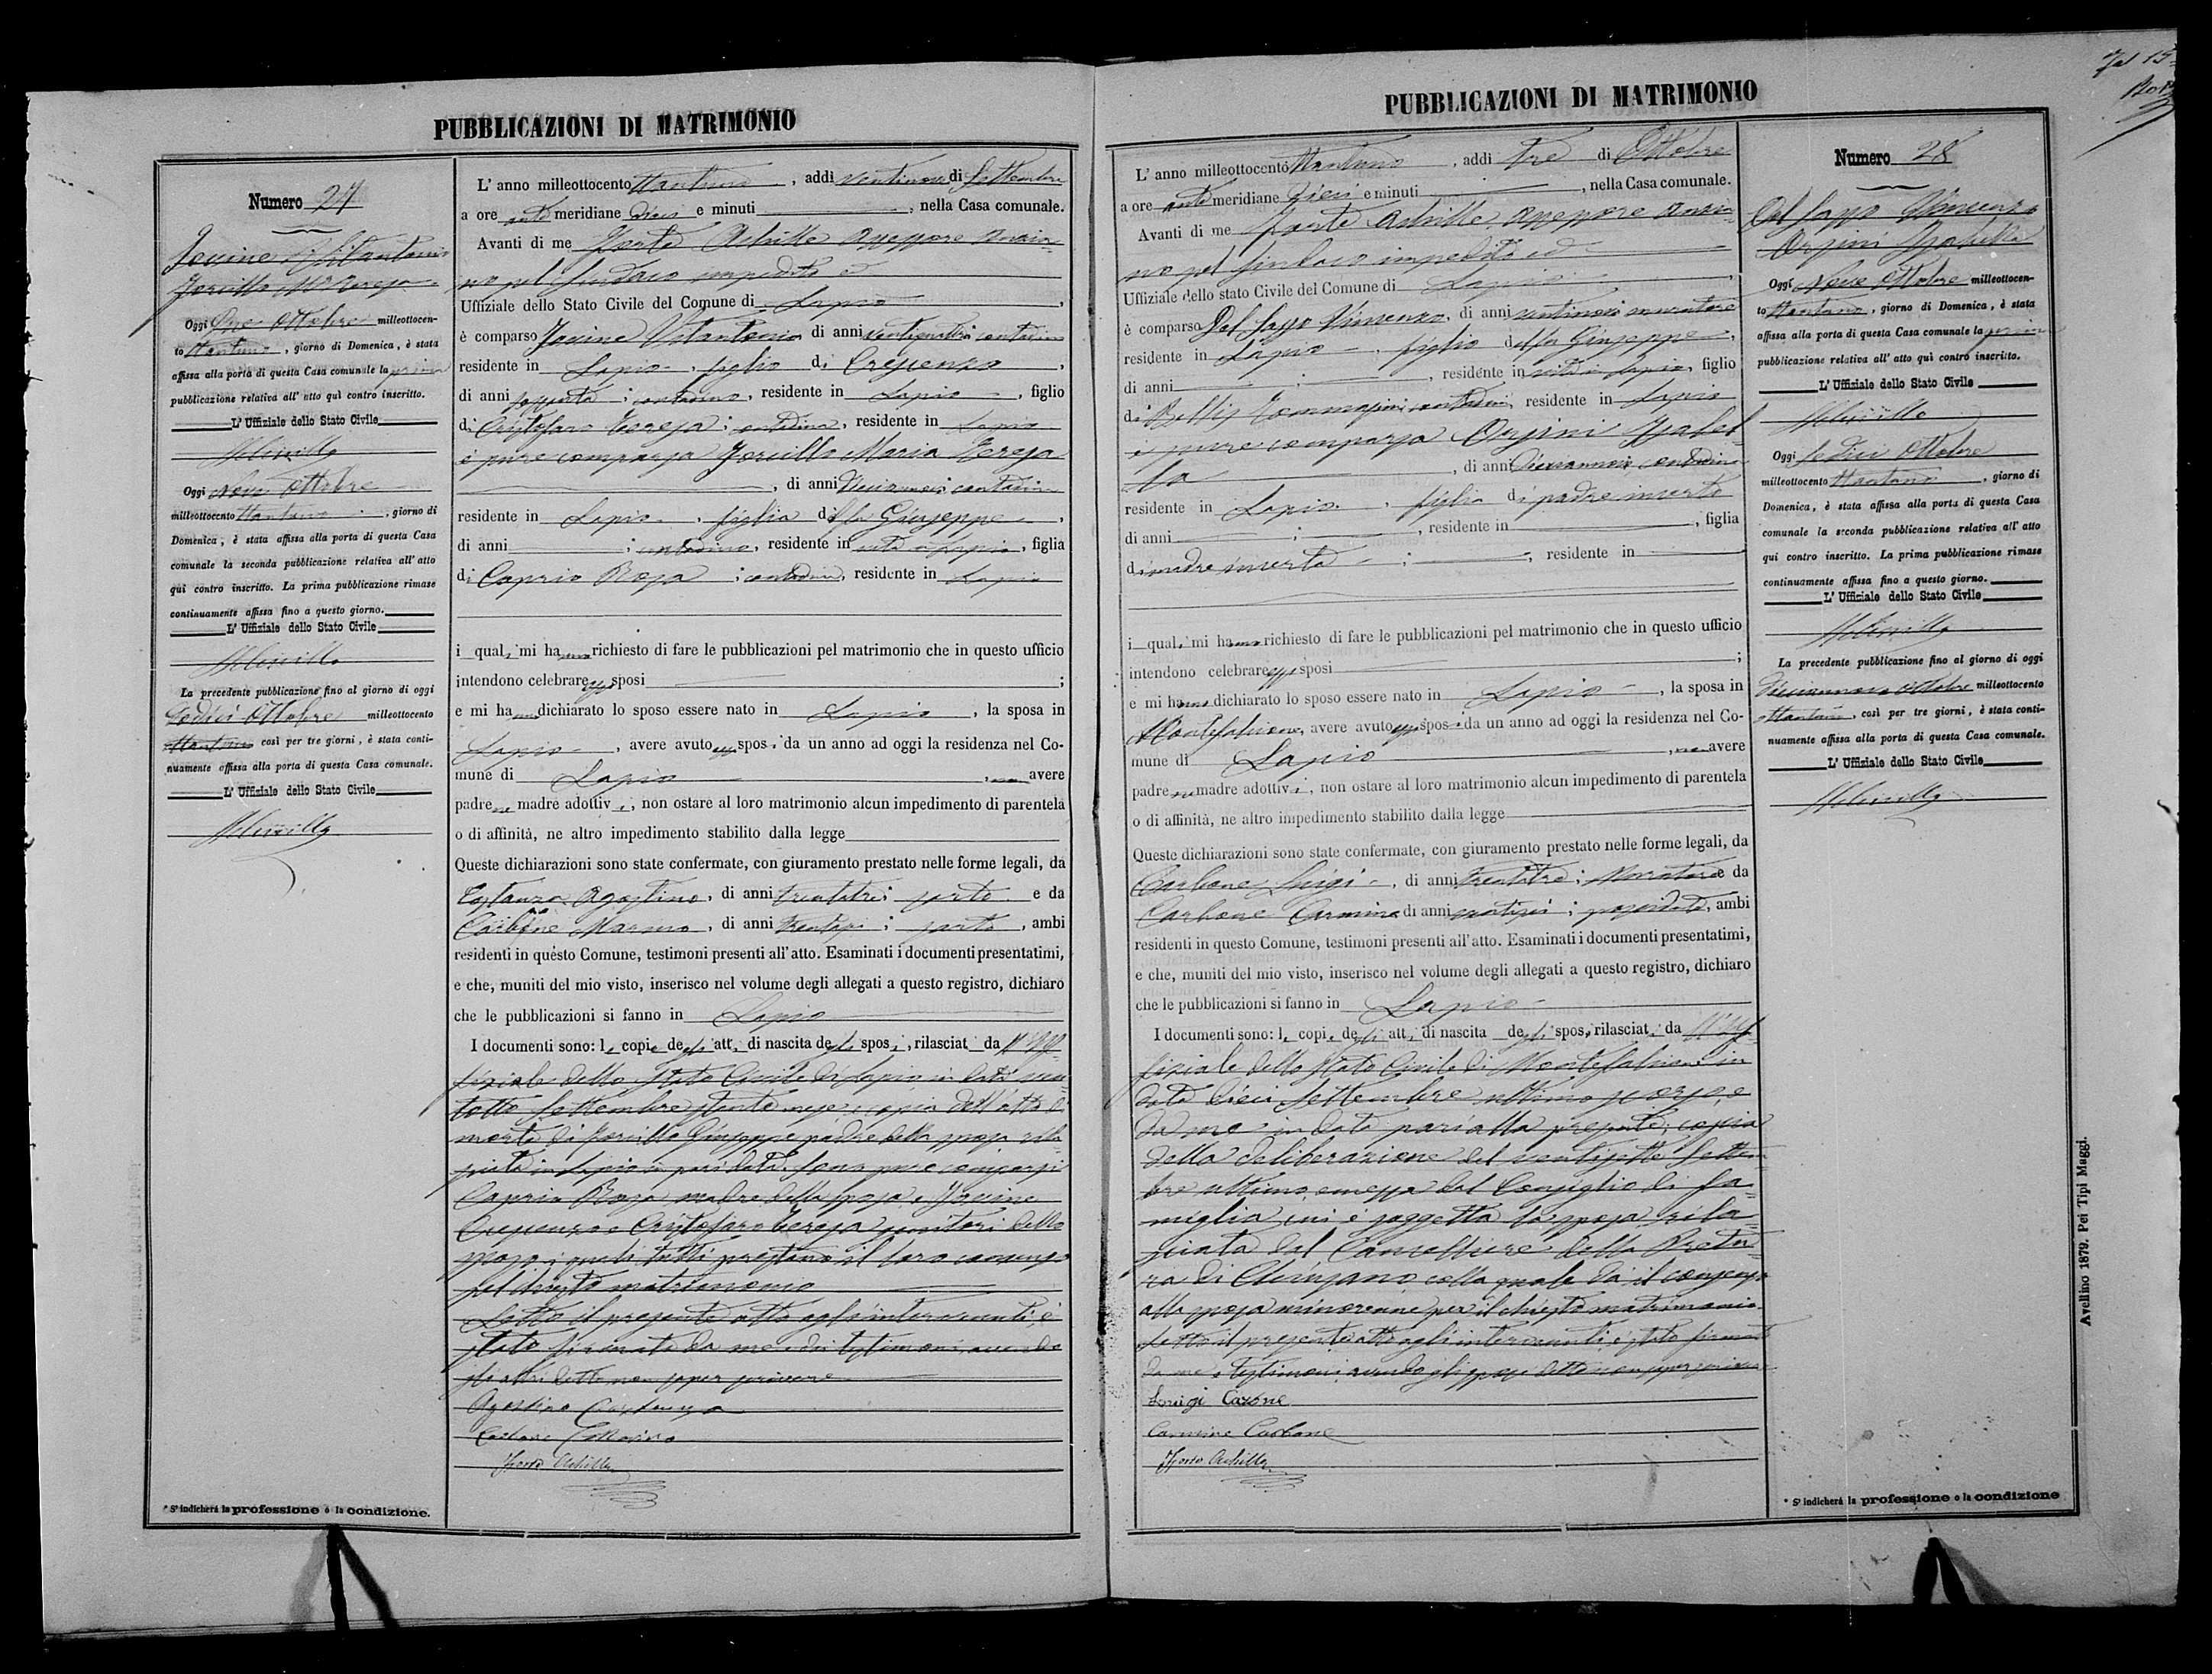 PUBBLICAZIONI DI MATRIMONIO
Numero 27
Iovine Vitantonio
Oggi Due Ottobre milleottocen-
to ottantuno, giorno di Domenica, è stata
affissa alla porta di questa Casa comunale la prima
pubblicazione relativa all' atto quì contro inscritto.
L' Uffiziale dello Stato Civile
Oggi nove Ottobre
milleottocento ottantuno, giorno di
Domenica, è stata affissa alla porta di questa Casa
comunale la seconda pubblicazione relativa all' atto
quì contro inscritto. La prima pubblicazione rimase
continuamente affissa fino a questo giorno.
L' Uffiziale dello Stato Civile
La precedente pubblicazione fino al giorno di oggi
Dodici Ottobre milleottocento
ottantuno così per tre giorni, è stata conti-
nuamente affissa alla porta di questa Casa comunale.
L' Uffiziale dello Stato Civile
* Si indicherà la professione o la condizione.
L' anno milleottocento ottantuno, addì ventinove di Settembre
a ore ante meridiane dieci e minuti , nella Casa comunale.
Avanti di me Forte Achille Assessore Anzia-
no pel Sindaco impedito ed
Uffiziale dello Stato Civile del Comune di Lapio,
è comparso Iovine Vitantonio di anni ventiquattro contadino
residente in Lapio, figlio di Crescenzo,
di anni sessanta; contadino, residente in Lapio, figlio
di Cristofaro Teresa; contadina, residente in Lapio
è pure comparsa Maria Teresa
, di anni contadina
residente in Lapio, figlia del fu Giuseppe,
di anni ; contadino, residente in vita a Lapio, figlia
di Caprio Rosa; contadina, residente in Lapio
i quali mi hanno richiesto di fare le pubblicazioni pel matrimonio che in questo ufficio
intendono celebrare essi sposi ;
e mi hanno dichiarato lo sposo essere nato in Lapio, la sposa in
Lapio, avere avuto essi sposi da un anno ad oggi la residenza nel Co-
mune di Lapio, non avere
padre ne madre adottivi, non ostare al loro matrimonio alcun impedimento di parentela
o di affinità, ne altro impedimento stabilito dalla legge
Queste dichiarazioni sono state confermate, con giuramento prestato nelle forme legali, da
Costanzo Agostino, di anni trentatre; sarto e da
Carbone Marino, di anni trentasei; sarto, ambi
residenti in questo Comune, testimoni presenti all' atto. Esaminati i documenti presentatimi,
e che, muniti del mio visto, inserisco nel volume degli allegati a questo registro, dichiaro
che le pubblicazioni si fanno in Lapio
I documenti sono: le copie degli atti di nascita degli sposi, rilasciati da ll' Uf-
fiziale dello Stato Civile di Lapio in data ven-
totto Settembre stante mese; copia dell' atto di
morte di Giuseppe padre della sposa rila-
sciata in Lapio in pari data. Sono pure comparsi
Caprio Rosa madre della sposa e Iovine
Crescenzo e Cristofaro Teresa genitori dello
sposo, i quali tutti prestano il loro consenso
pel chiesto matrimonio
Letto il presente atto agl'intervenuti, è
stato firmato da me e dai testimoni, avendo
gli altri detto non saper scrivere
Agostino Costanzo
Carbone Marino
Forte Achille
PUBBLICAZIONI DI MATRIMONIO
L' anno milleottocento ottantuno, addì tre di Ottobre
a ore ante meridiane dieci e minuti , nella Casa comunale.
Avanti di me Forte Achille Assessore Anzia-
no pel Sindaco impedito ed
Uffiziale dello stato Civile del Comune di Lapio,
è comparso Del Sasso Vincenzo, di anni ventinove muratore
residente in Lapio, figlio del fu Giuseppe,
di anni ; , residente in vita in Lapio, figlio
di Bellis Tommasina contadina, residente in Lapio
è pure comparsa Orsini Isabel-
la , di anni diciannove contadina
residente in Lapio, figlia di padre incerto
di anni ; , residente in , figlia
di madre incerta ; , residente in
i quali mi hanno richiesto di fare le pubblicazioni pel matrimonio che in questo ufficio
intendono celebrare essi sposi ;
e mi hanno dichiarato lo sposo essere nato in Lapio, la sposa in
Montefalcione, avere avuto essi sposi da un anno ad oggi la residenza nel Co-
mune di Lapio, non avere
padre ne madre adottivi, non ostare al loro matrimonio alcun impedimento di parentela
o di affinità, ne altro impedimento stabilito dalla legge
Queste dichiarazioni sono state confermate, con giuramento prestato nelle forme legali, da
Carbone Luigi, di anni trentatre; Muratore e da
Carbone Carmine di anni ; possidente, ambi
residenti in questo Comune, testimoni presenti all' atto. Esaminati i documenti presentatimi,
e che, muniti del mio visto, inserisco nel volume degli allegati a questo registro, dichiaro
che le pubblicazioni si fanno in Lapio
I documenti sono: le copie degli atti di nascita degli sposi rilasciati da ll' Uf-
fiziale dello Stato Civile di Montefalcione in
data dieci Settembre ultimo scorso, e
da me in data pari alla presente; copia
della deliberazione del ventisette Settem-
bre ultimo, emessa dal Consiglio di fa-
miglia cui è soggetta la sposa, rila-
sciata dal Cancelliere della Pretu-
ra di Chiusano, colla quale dà il consenso
alla sposa minorenne per il chiesto matrimonio.
Letto il presente atto agli intervenuti, è stato firmato
da me e testimoni, avendo gli sposi detto non saper scrivere
Luigi Carbone
Carmine Carbone
Forte Achille
Numero 28
Del Sasso Vincenzo
Orsini Isabella
Oggi Nove Ottobre milleottocen-
to ottantuno, giorno di Domenica, è stata
affissa alla porta di questa Casa comunale la prima
pubblicazione relativa all' atto quì contro inscritto.
L' Uffiziale dello Stato Civile
Oggi Sedici Ottobre
milleottocento ottantuno, giorno di
Domenica, è stata affissa alla porta di questa Casa
comunale la seconda pubblicazione relativa all' atto
quì contro inscritto. La prima pubblicazione rimase
continuamente affissa fino a questo giorno.
L' Uffiziale dello Stato Civile
La precedente pubblicazione fino al giorno di oggi
diciannove Ottobre milleottocento
ottantuno, così per tre giorni, è stata conti-
nuamente affissa alla porta di questa Casa comunale.
L' Uffiziale dello Stato Civile
* Si indicherà la professione o la condizione
Avellino 1879. Pei Tipi Maggi.